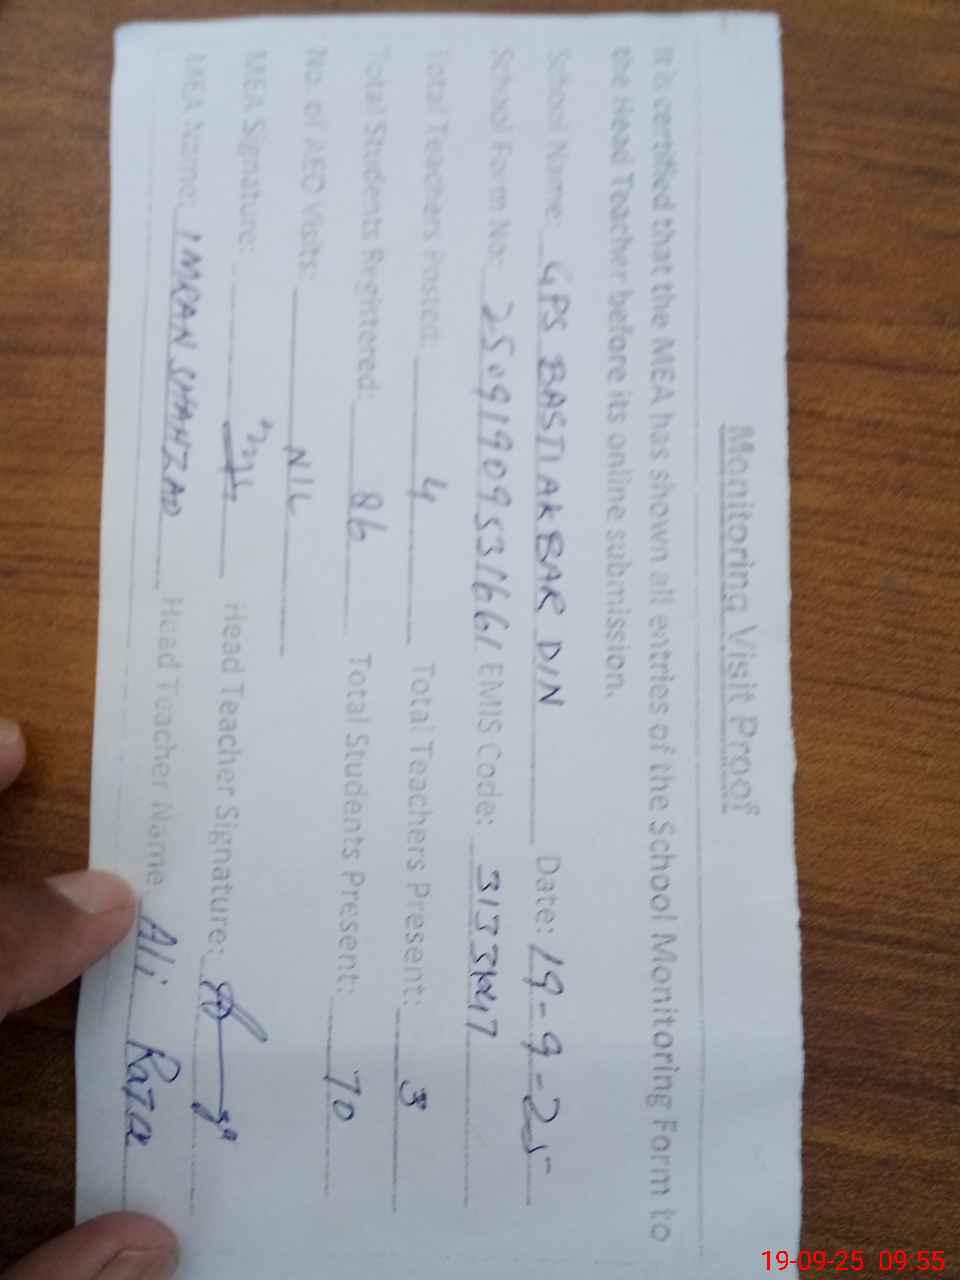 Monitoring Visit Proof
It is certified that the MEA has shown all entries of the School Monitoring Form to
the Head Teacher before its online submission.
School Name: GPS BASTI AKBAR DIN Date: 19-9-25
School Form No: 25091909531661 EMIS Code:
Total Teachers Posted: 4 Total Teachers Present: 3
Total Students Registered: 86 Total Students Present: 70
No. of AEO Visits: NIL
MEA Signature: Head Teacher Signature:
MEA Name: IMRAN SHAHZAD Head Teacher Name Ali Raza
19-09-25 09:55